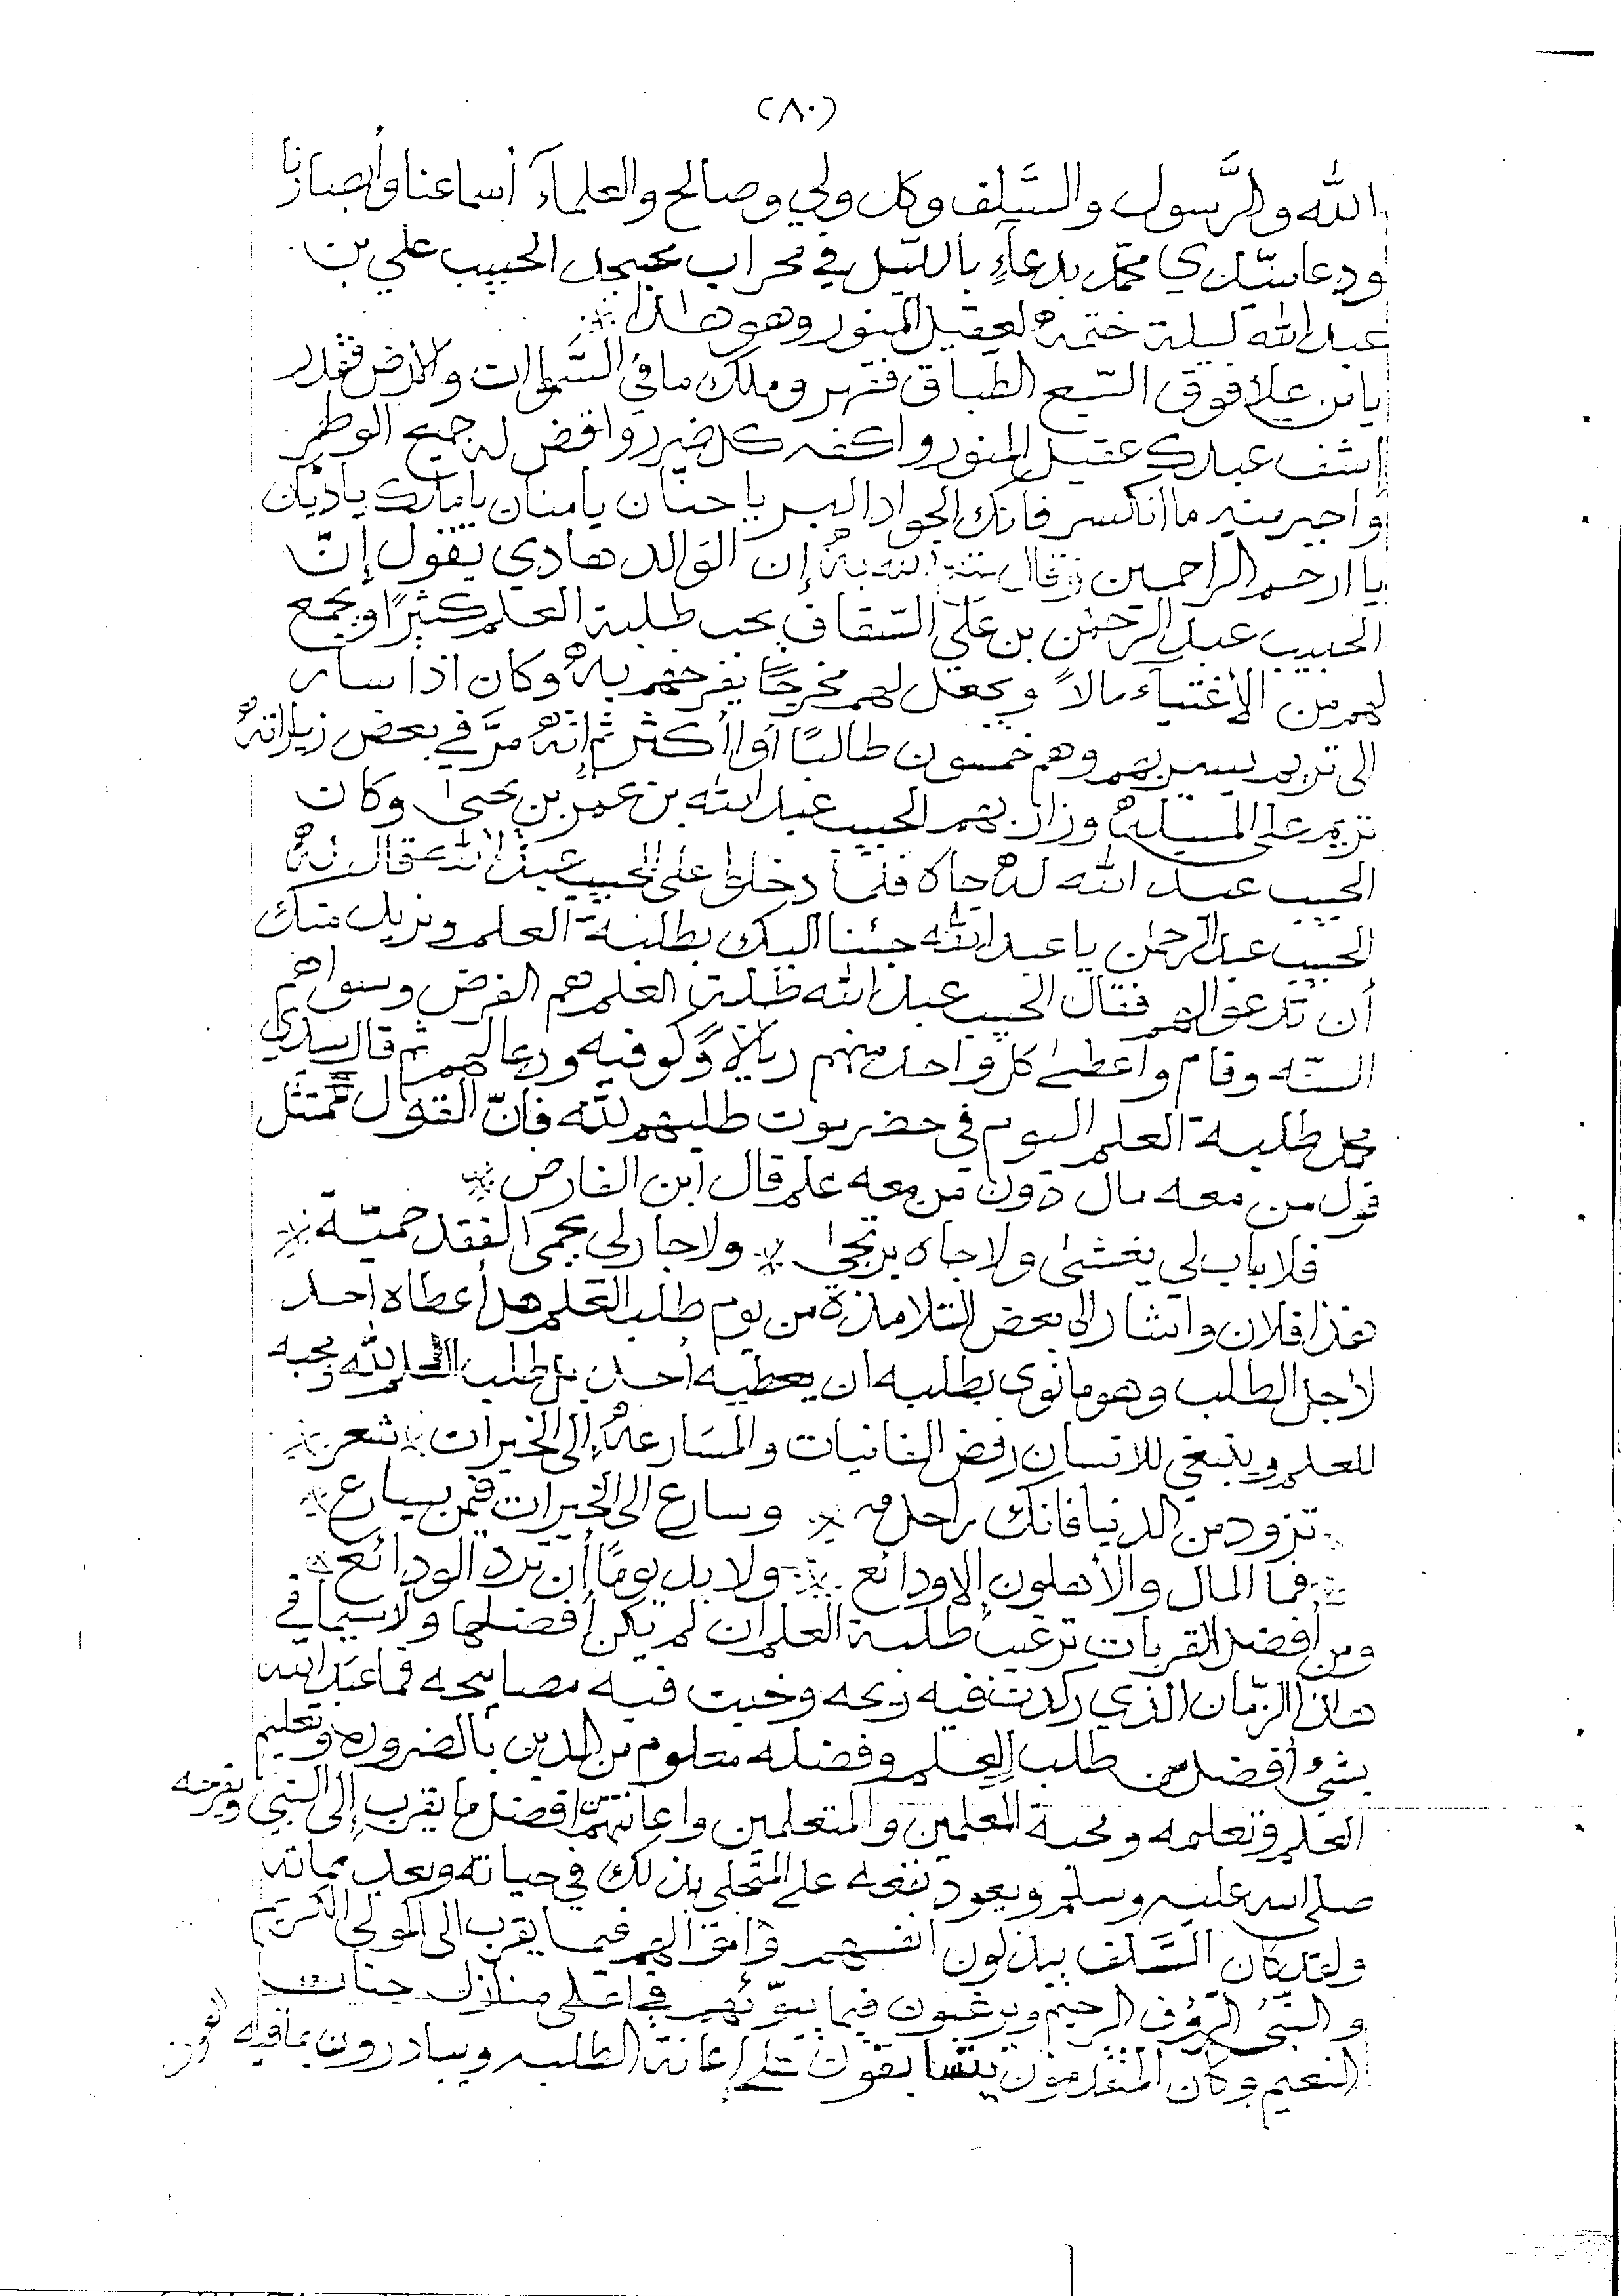 (٨٠)
الله والرَّسول والسَّلف وكل ولي وصالح والعلمآء أسماعنا وأبصارنا
ودعا سيّدي محمّد بدعآءٍ بالليل في محراب مسجد الحبيب علي بن
عبد الله ليلة ختمهْ لعقيل المنور وهو هاذا
يا من علا فوق السّبع الطباق فقهر وملك ما في السَّموات والارض فقدر
إشف عبدك عقيل المنور واكفه كل ضرر واقض له جميع الوطر
واجبر منه ما انكسر فانك الجواد البر يا حنان يا منان يا ملك يا ديان
يا ارحم الراحمين وقال متع الله به إن الوالد هادي يقول إنّ
الحبيب عبد الرّحمٰن بن علي السّقاف يحب طلبة العلم كثيرًا ويجمع
لهم من الأغنيآء مالاً ويجعل لهم مخرجًا يفرحهم بهْ وكان اذا سار
الى تريم يسير بهم وهم خمسون طالبًا أو أكثر ثم انهْ مرَّ في بعض زياراتهْ
تريم على المسيلهْ وزار بهم الحبيب عبد الله بن عمر بن يحيىٰ وكان
الحبيب عبد الله لهْ جاه فلما دخلوا على الحبيب عبد الله قال لهْ
الحبيب عبد الرحمٰن يا عبد الله جئنا اليك بطلبة العلم ونريد منك
أن تدعو لهم فقال الحبيب عبد الله طلبة العلم هم الفرض وسواهم
السنّه وقام واعطىٰ كل واحد منهم ريالاً وكوفيه ودعا لهم ثم قال سيدي
محمد طلبة العلم اليوم في حضرموت طلبهم لله فانّ القول يمتثل
قول من معه مال دون من معه علم قال ابن الفارض
فلا باب لي يغشىٰ ولا جاه يرتجىٰ * ولا جار لي يحمى الفقد حميّة *
هذا فلان واشار الى بعض التلامذة من يوم طلب العلم هل أعطاه احد
لأجل الطلب وهو ما نوى بطلبه ان يعطيه أحد بل طلب العلم لله ومحبه
للعلم وينبغي للانسان رفض الفانيات والمسَارعهْ إلى الخيرات * شعر *
تزود من الدنيا فانك راحل * وسارع الى الخيرات فيمن يسارع *
فما المال والأهلون إلا ودائع * ولا بد يومًا أن ترد الودائع *
ومن أفضل القربات ترغيب طلبة العلم ان لم يكن أفضلها ولا سيما في
هاذا الزّمان الذي ركدت فيه ريحه وخبت فيه مصابيحه فما عبد الله
بشيءٍ أفضل من طلب العِلم وفضله معلوم من الدين بالضروره وتعليم
العلم وتعلمه ومحبة المعلمين والمتعلمين واعانتهم من افضل ما يقرب إلى النبي ويفرحه
صلى الله عليه وسلم ويعود نفعه على المتحلي بذلك في حياته وبعد مماته
ولقد كان السَّلف يبذلون انفسهم واموالهم فيما يقرب الى المولى الكريم
والنّبي الرّؤف الرحيم ويرغبون فيما يبوّئهم في اعلى منازل جنات
النعيم وكان المتقدمون يتسابقون على إعانة الطلبه ويبادرون بما فيه